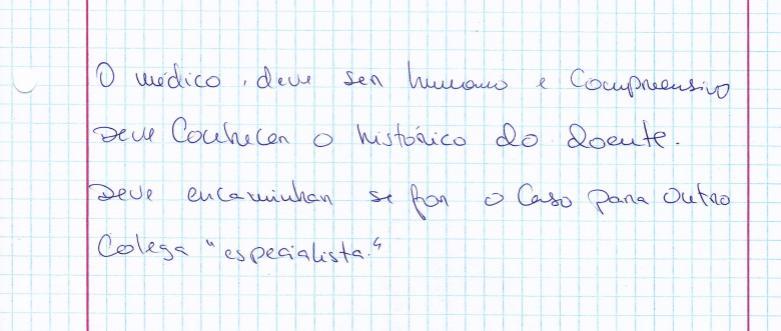 O médico, deve ser humano e Compreensivo
Deve Conhecer o histórico do doente.
Deve encaminhar se for o Caso para outro
Colega "especialista."